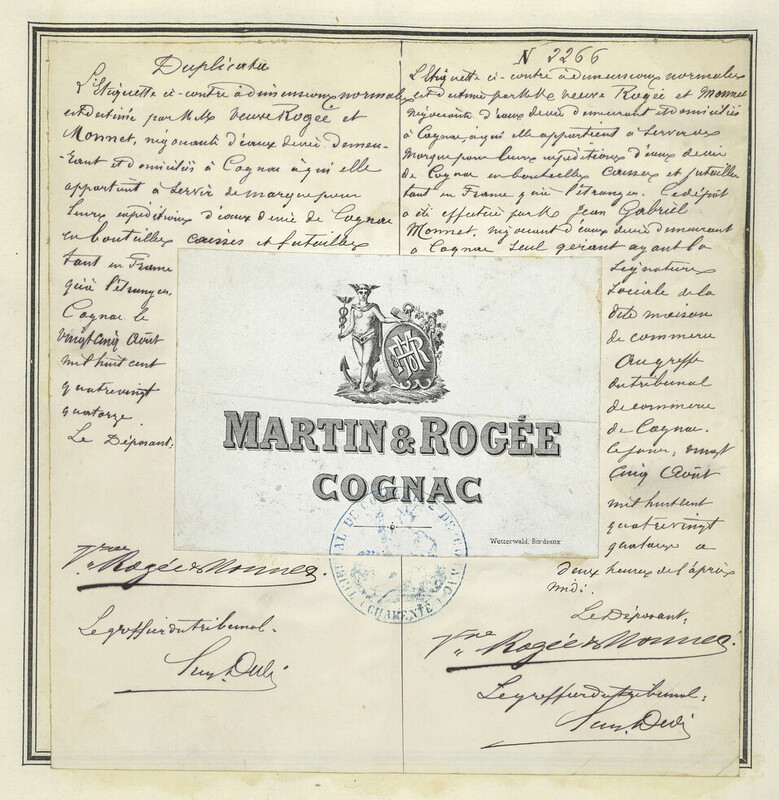 Duplicata
L'Etiquette ci-contre à dimensions normales
est destinée par MM veuve Rogée et
Monnet, négociants d'eaux de vie demeu-
-rant et domiciliés à Cognac à qui elle
appartient à servir de marque pour
leurs expéditions d'eaux de vie de Cognac
en bouteilles caisses et futailles
tant en France
qu'à l'étranger.
Cognac le
vingt cinq Août
mil huit cent
quatrevingt
quatorze.
Le Déposant:
Vve Rogée & Monnet.
Le greffier du tribunal.
N 2266
L'Etiquette ci-contre à dimensions normales
est destinée par MM veuve Rogée et Monnet
négociants d'eaux de vie demeurant et domiciliés
à Cognac, à qui elle appartient à servir de
marque pour leurs expéditions d'eaux de vie
de Cognac en bouteilles caisses et futailles
tant en France qu'à l'étranger. Ce dépôt
a été effectué par M Jean Gabriel
Monnet, négociant d'eaux de vie demeurant
à Cognac seul gérant ayant la
signature
sociale de la
dite maison
de commerce
au greffe
du tribunal
de commerce
de Cognac.
ce jour, vingt
cinq Août
mil huit cent
quatrevingt
quatorze à
deux heures de l'après
midi.
Le Déposant,
Vve Rogée & Monnet.
Le greffier du tribunal:
HMR
MARTIN & ROGÉE
COGNAC
Wetterwald, Bordeaux
TRIBUNAL DE COMMERCE DE COGNAC
(CHARENTE)